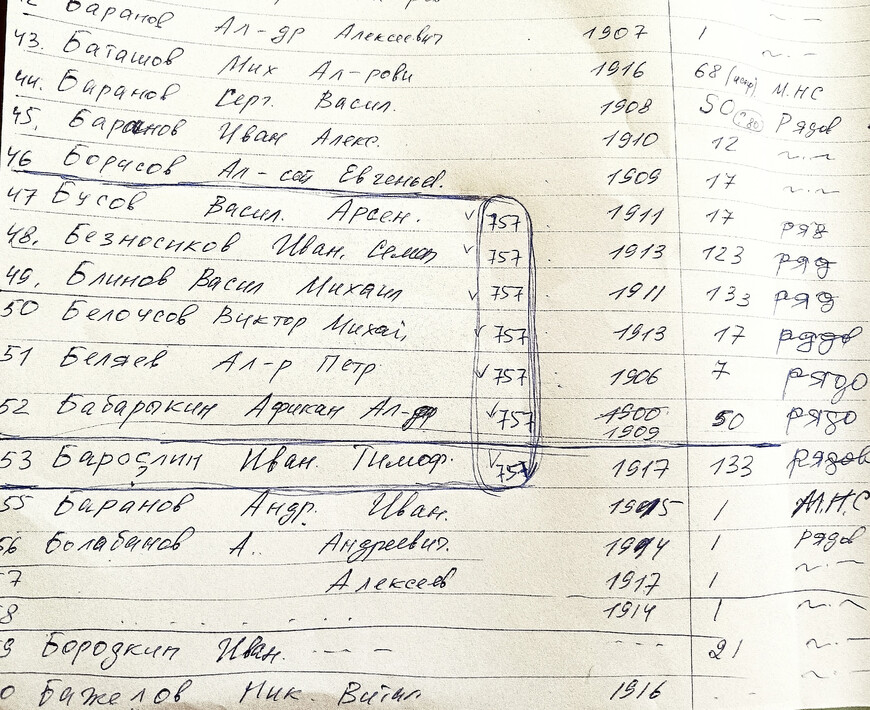 Баранов Ал-др Алексеевич 1907 1
43. Баташов Мих Ал-рови 1916 68 (испр) М.НС
44. Баранов Серг. Васил. 1908 50 Рядов
45. Баранов Иван Алекс. 1910 12 ~.~
46 Борисов Ал-сей Евгеньев. 1909 17 ~.~
47 Бусов Васил. Арсен. ✓ 757 1911 17 ряд
48. Безносиков Иван. Семен ✓ 757 1913 123 ряд
49. Блинов Васил Михаил ✓ 757 1911 133 ряд
50 Белоусов Виктор Михай, ✓ 757 1913 17 рядов
51 Беляев Ал-р Петр ✓ 757 1906 7 рядо
52 Бабарыкин Африкан Ал-др ✓ 757 1900 1909 50 рядо
53 Барослин ? Иван. Тимоф. ✓ 757 1917 133 рядов
55 Баранов Андр. Иван. 1915 1 М.Н.С
56 Болабанов А.. Андреевич. 1914 1 рядов
7 Алексеев 1917 1 ~.~
8 1914 1 ~.~
9 Бородкин Иван. --- --- 21 ~.~
0 Бажелов Ник. 1916